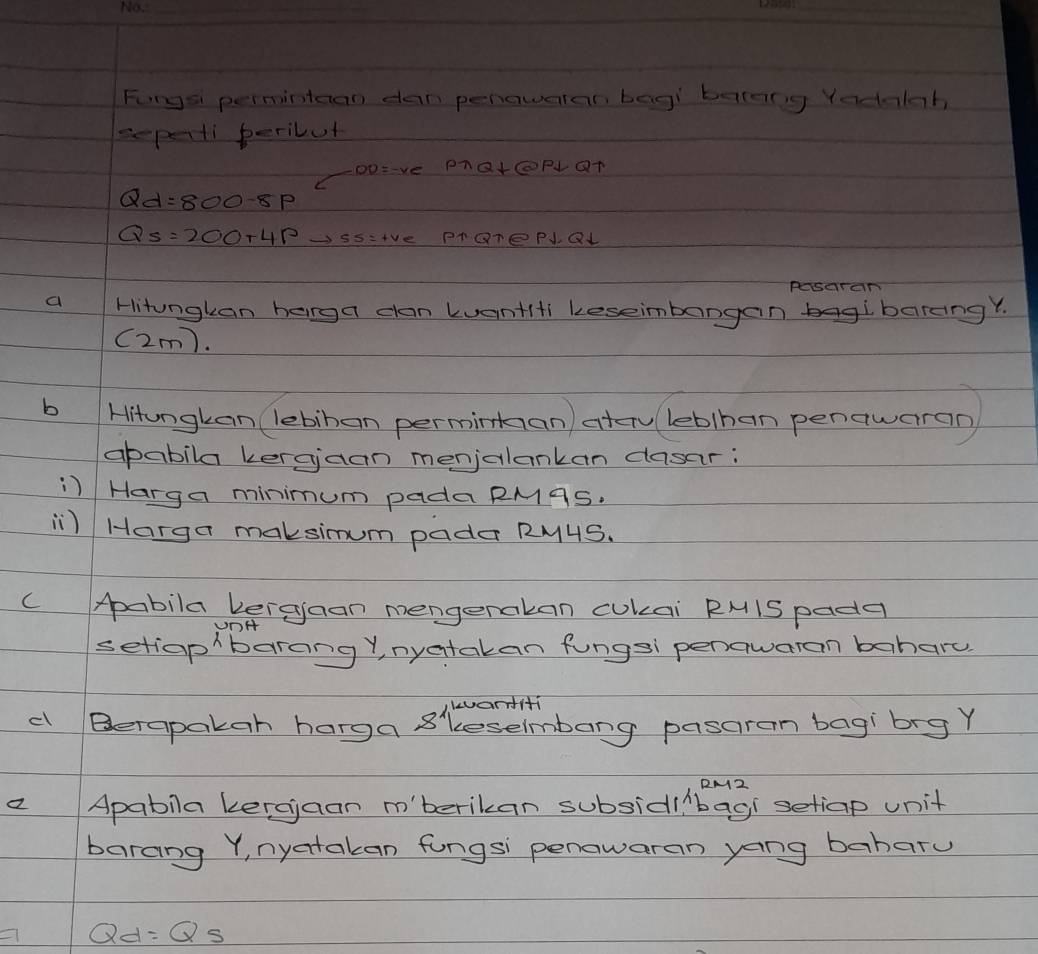 No.:
Fungsi permintaan dan penawaran bagi barang Y adalah
seperti berikut
DD=-ve P↑Q↓@P↓Q↑
Qd=800-8P
Qs=200+4P → ss=+ve P↑Q↑@P↓Q↓
pasaran
a Hitungkan harga dan kuantiti keseimbangan bagi barang Y.
(2m).
b Hitungkan (lebihan permintaan) atau (lebihan penawaran)
apabila kerajaan menjalankan dasar:
i) Harga minimum pada RM95.
ii) Harga maksimum pada RM45.
c Apabila kerajaan mengenakan cukai RM15 pada
unit
setiap ^ barang Y, nyatakan fungsi penawaran baharu.
kuantiti
d Berapakah harga & ^ keseimbang pasaran bagi brg Y
RM2
e Apabila kerajaan m'berikan subsidi ^ bagi setiap unit
barang Y, nyatakan fungsi penawaran yang baharu
a Qd=Qs